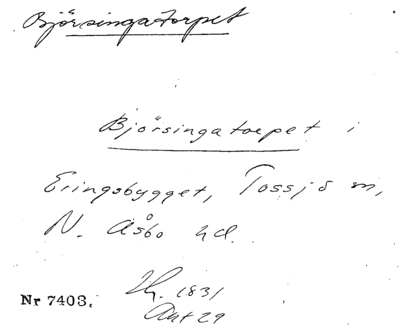 Björsingatorpet
Björsingatorpet i
Eringsbygget, Tossjö sn,
N. Åsbo hd.
Hy. 1831
Akt 29
Nr 7403.